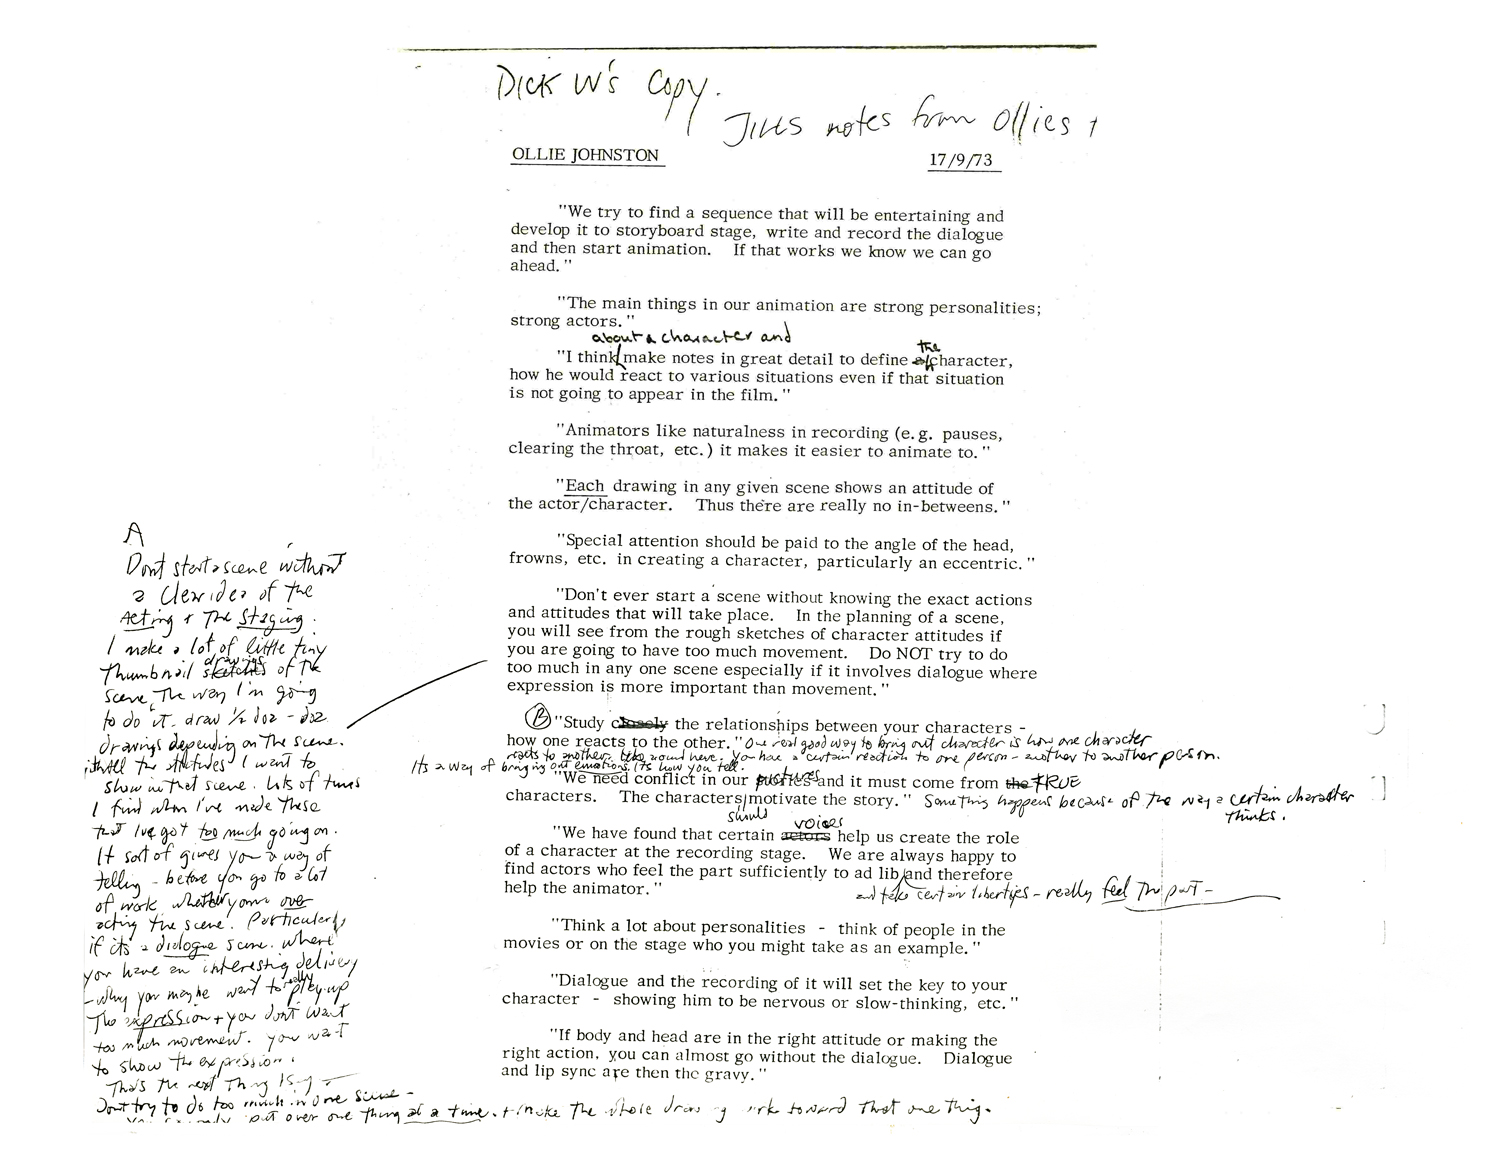 DICK W's Copy.
JILLS notes from Ollies
OLLIE JOHNSTON 17/9/73
"We try to find a sequence that will be entertaining and
develop it to storyboard stage, write and record the dialogue
and then start animation. If that works we know we can go
ahead."
"The main things in our animation are strong personalities;
strong actors."
about a character and
the
"I think make notes in great detail to define character,
how he would react to various situations even if that situation
is not going to appear in the film."
"Animators like naturalness in recording (e.g. pauses,
clearing the throat, etc.) it makes it easier to animate to."
"Each drawing in any given scene shows an attitude of
the actor/character. Thus there are really no in-betweens."
"Special attention should be paid to the angle of the head,
frowns, etc. in creating a character, particularly an eccentric."
"Don't ever start a scene without knowing the exact actions
and attitudes that will take place. In the planning of a scene,
you will see from the rough sketches of character attitudes if
you are going to have too much movement. Do NOT try to do
too much in any one scene especially if it involves dialogue where
expression is more important than movement."
(B) "Study closely the relationships between your characters -
how one reacts to the other." One real good way to bring out character is how one character
reacts to another. You have a certain reaction to one person - another to another person.
Its a way of bringing out emotions. Its how you tell.
"We need conflict in our pictures and it must come from the TRUE
characters. The characters motivate the story." Something happens because of the way a certain character
thinks.
should
voices
"We have found that certain actors help us create the role
of a character at the recording stage. We are always happy to
find actors who feel the part sufficiently to ad lib and therefore
help the animator."
and take certain liberties - really feel the part -
"Think a lot about personalities - think of people in the
movies or on the stage who you might take as an example."
"Dialogue and the recording of it will set the key to your
character - showing him to be nervous or slow-thinking, etc."
"If body and head are in the right attitude or making the
right action, you can almost go without the dialogue. Dialogue
and lip sync are then the gravy."
A
Dont start a scene without
a clear idea of the
Acting + The Staging.
I make a lot of little tiny
drawings
Thumbnail sketches of the
scene, The way I'm going
to do it. draw ½ doz - doz
drawings depending on the scene.
with all the attitudes I want to
show in that scene. Lots of times
I find when I've made these
that I've got too much going on.
It sort of gives you a way of
telling - before you go to a lot
of work whether your over
acting the scene. Particularly
if its a dialogue scene. where
you have an interesting delivery
really
- why you maybe want to play up
The expression + you don't want
too much movement. you want
to show the expression.
That's the next Thing
Dont try to do too much in one scene -
put over one thing at a time. + make the whole drawing work toward that one thing.